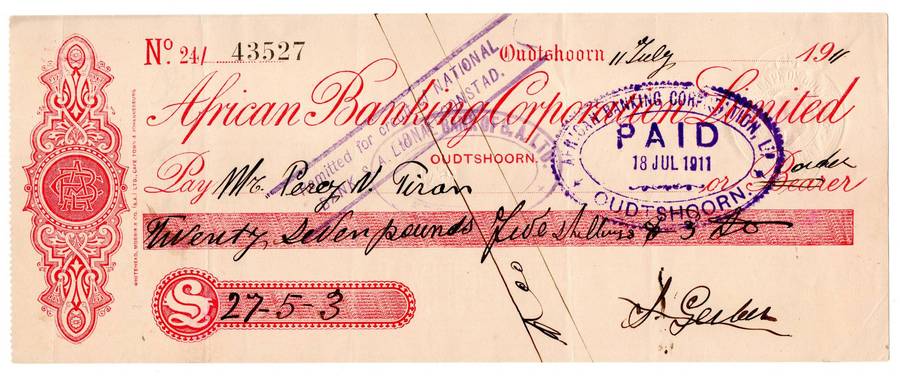 No 24/ 43527 Oudtshoorn 11 July 1911
African Banking Corporation Limited
OUDTSHOORN.
Pay Mr. Percy N. Tiran or Bearer order
Twenty seven pounds five shillings & 3
£ 27-5-3
J. Gerber
AFRICAN BANKING CORPORATION, LTD
PAID
18 JUL 1911
OUDTSHOORN.
NATIONAL
& Co
WHITEHEAD, MORRIS & CO. (S.A.) LTD., CAPE TOWN & JOHANNESBURG.